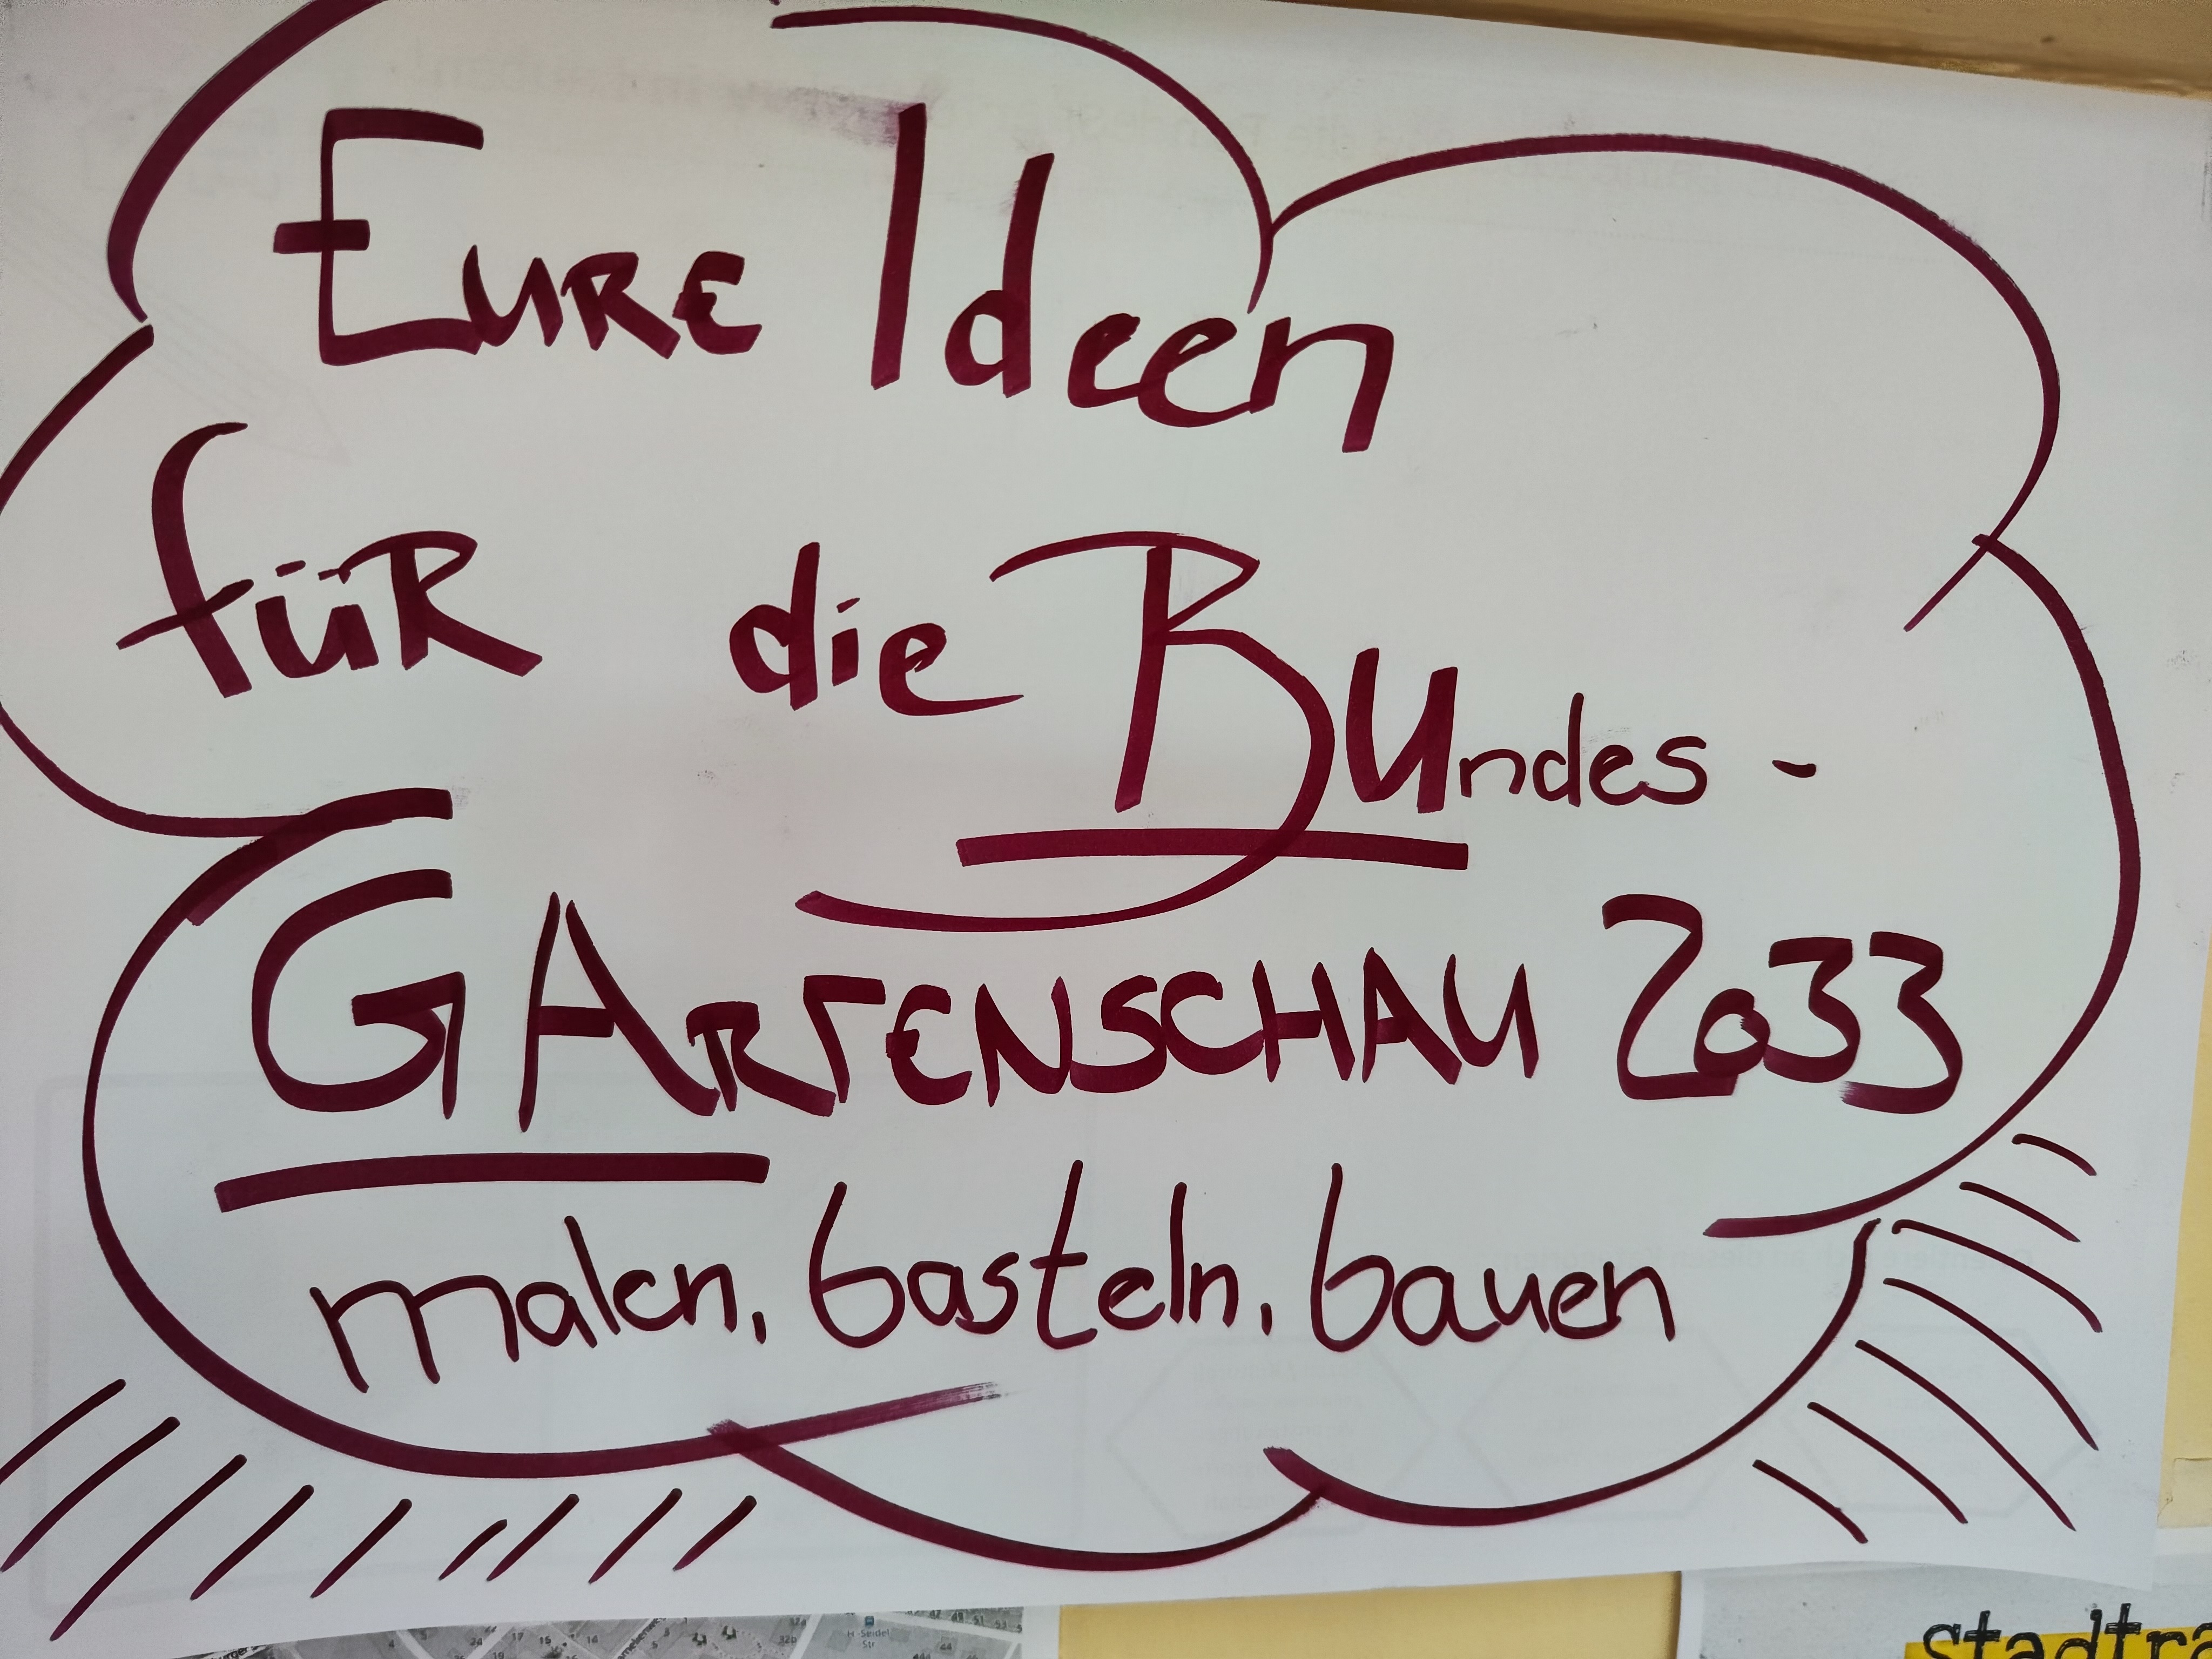 Eure Ideen
für die Bundes-
Gartenschau 2033
malen, basteln, bauen
H.-Seidel
Str
stadtra